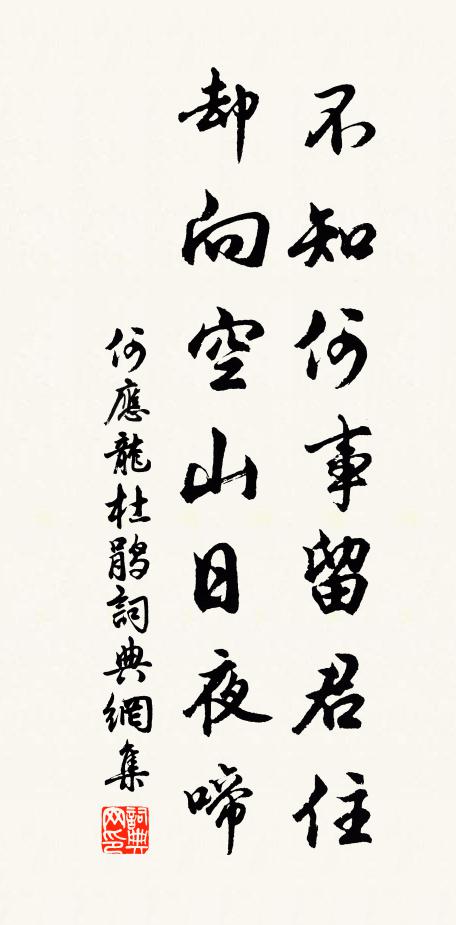 不知何事留君住
却向空山日夜啼
何應龍杜鵑詞典網集
詞典
网印